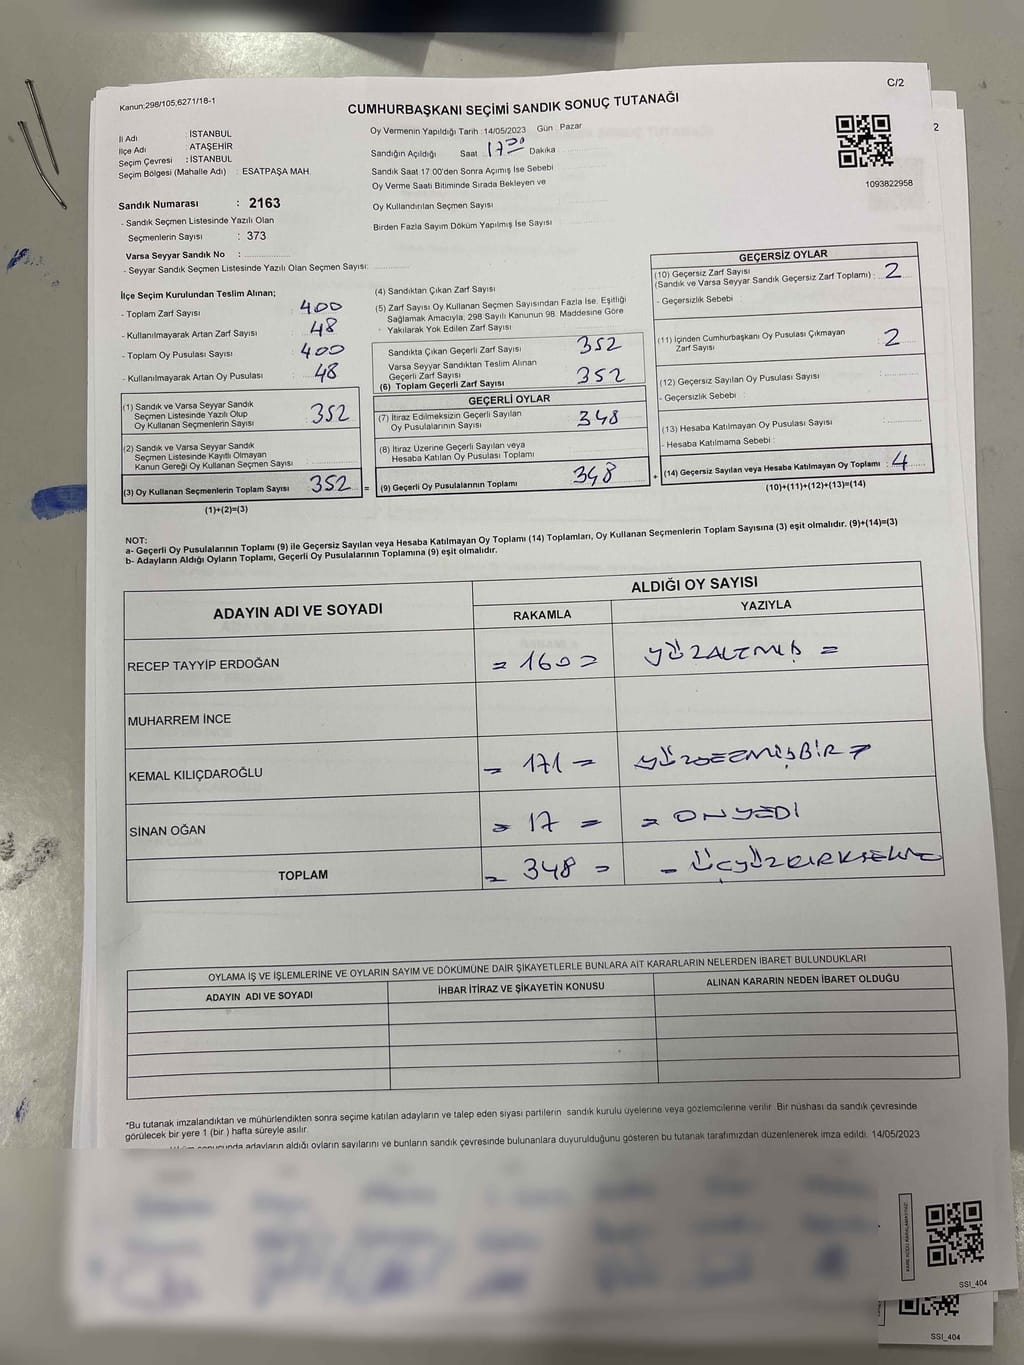 C/2
Kanun:298/105,6271/18-1
CUMHURBAŞKANI SEÇİMİ SANDIK SONUÇ TUTANAĞI
İl Adı : İSTANBUL
İlçe Adı : ATAŞEHİR
Seçim Çevresi : İSTANBUL
Seçim Bölgesi (Mahalle Adı) : ESATPAŞA MAH.
Sandık Numarası : 2163
- Sandık Seçmen Listesinde Yazılı Olan
Seçmenlerin Sayısı : 373
Varsa Seyyar Sandık No :
- Seyyar Sandık Seçmen Listesinde Yazılı Olan Seçmen Sayısı:
Oy Vermenin Yapıldığı Tarih :14/05/2023 Gün : Pazar
Sandığın Açıldığı Saat 17 Dakika
Sandık Saat 17:00'den Sonra Açımış İse Sebebi
Oy Verme Saati Bitiminde Sırada Bekleyen ve
Oy Kullandırılan Seçmen Sayısı
Birden Fazla Sayım Döküm Yapılmış İse Sayısı
2
1093822958
İlçe Seçim Kurulundan Teslim Alınan;
- Toplam Zarf Sayısı 400
- Kullanılmayarak Artan Zarf Sayısı 48
- Toplam Oy Pusulası Sayısı 400
- Kullanılmayarak Artan Oy Pusulası 48
(1) Sandık ve Varsa Seyyar Sandık
Seçmen Listesinde Yazılı Olup
Oy Kullanan Seçmenlerin Sayısı 352
(2) Sandık ve Varsa Seyyar Sandık
Seçmen Listesinde Kayıtlı Olmayan
Kanun Gereği Oy Kullanan Seçmen Sayısı
(3) Oy Kullanan Seçmenlerin Toplam Sayısı 352 =
(1)+(2)=(3)
(4) Sandıktan Çıkan Zarf Sayısı
(5) Zarf Sayısı Oy Kullanan Seçmen Sayısından Fazla İse, Eşitliği
Sağlamak Amacıyla, 298 Sayılı Kanunun 98. Maddesine Göre
Yakılarak Yok Edilen Zarf Sayısı
Sandıkta Çıkan Geçerli Zarf Sayısı 352
Varsa Seyyar Sandıktan Teslim Alınan
Geçerli Zarf Sayısı
(6) Toplam Geçerli Zarf Sayısı 352
GEÇERLİ OYLAR
(7) İtiraz Edilmeksizin Geçerli Sayılan
Oy Pusulalarının Sayısı 348
(8) İtiraz Üzerine Geçerli Sayılan veya
Hesaba Katılan Oy Pusulası Toplamı
(9) Geçerli Oy Pusulalarının Toplamı 348 +
GEÇERSİZ OYLAR
(10) Geçersiz Zarf Sayısı
(Sandık ve Varsa Seyyar Sandık Geçersiz Zarf Toplamı) : 2
- Geçersizlik Sebebi :
(11) İçinden Cumhurbaşkanı Oy Pusulası Çıkmayan
Zarf Sayısı 2
(12) Geçersiz Sayılan Oy Pusulası Sayısı :
- Geçersizlik Sebebi :
(13) Hesaba Katılmayan Oy Pusulası Sayısı
- Hesaba Katılmama Sebebi :
(14) Geçersiz Sayılan veya Hesaba Katılmayan Oy Toplamı : 4
(10)+(11)+(12)+(13)=(14)
NOT:
a- Geçerli Oy Pusulalarının Toplamı (9) ile Geçersiz Sayılan veya Hesaba Katılmayan Oy Toplamı (14) Toplamları, Oy Kullanan Seçmenlerin Toplam Sayısına (3) eşit olmalıdır. (9)+(14)=(3)
b- Adayların Aldığı Oyların Toplamı, Geçerli Oy Pusulalarının Toplamına (9) eşit olmalıdır.
ADAYIN ADI VE SOYADI
ALDIĞI OY SAYISI
RAKAMLA YAZIYLA
RECEP TAYYİP ERDOĞAN = 160 = YÜZALTMIŞ =
MUHARREM İNCE
KEMAL KILIÇDAROĞLU = 171 = YÜZYETMİŞBİR =
SİNAN OĞAN = 17 = = ONYEDİ
TOPLAM = 348 = = ÜÇYÜZKIRKSEKİZ
OYLAMA İŞ VE İŞLEMLERİNE VE OYLARIN SAYIM VE DÖKÜMÜNE DAİR ŞİKAYETLERLE BUNLARA AİT KARARLARIN NELERDEN İBARET BULUNDUKLARI
ADAYIN ADI VE SOYADI İHBAR İTİRAZ VE ŞİKAYETİN KONUSU ALINAN KARARIN NEDEN İBARET OLDUĞU
*Bu tutanak imzalandıktan ve mühürlendikten sonra seçime katılan adayların ve talep eden siyasi partilerin sandık kurulu üyelerine veya gözlemcilerine verilir. Bir nüshası da sandık çevresinde
görülecek bir yere 1 (bir ) hafta süreyle asılır.
sonucunda adayların aldığı oyların sayılarını ve bunların sandık çevresinde bulunanlara duyurulduğunu gösteren bu tutanak tarafımızdan düzenlenerek imza edildi. 14/05/2023
SSI_404
SSI_404